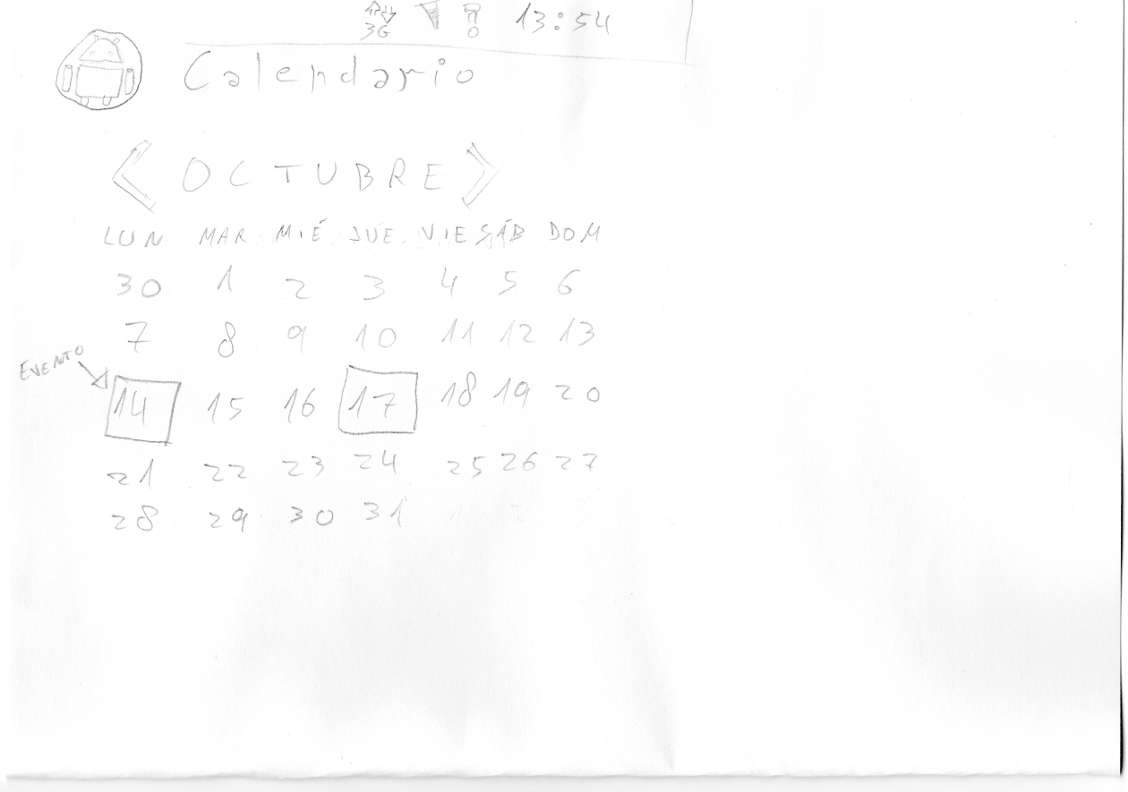 3G 13:54
Calendario
OCTUBRE
LUN MAR MIÉ JUE VIE SÁB DOM
30 1 2 3 4 5 6
7 8 9 10 11 12 13
EVENTO
14 15 16 17 18 19 20
21 22 23 24 25 26 27
28 29 30 31 1 2